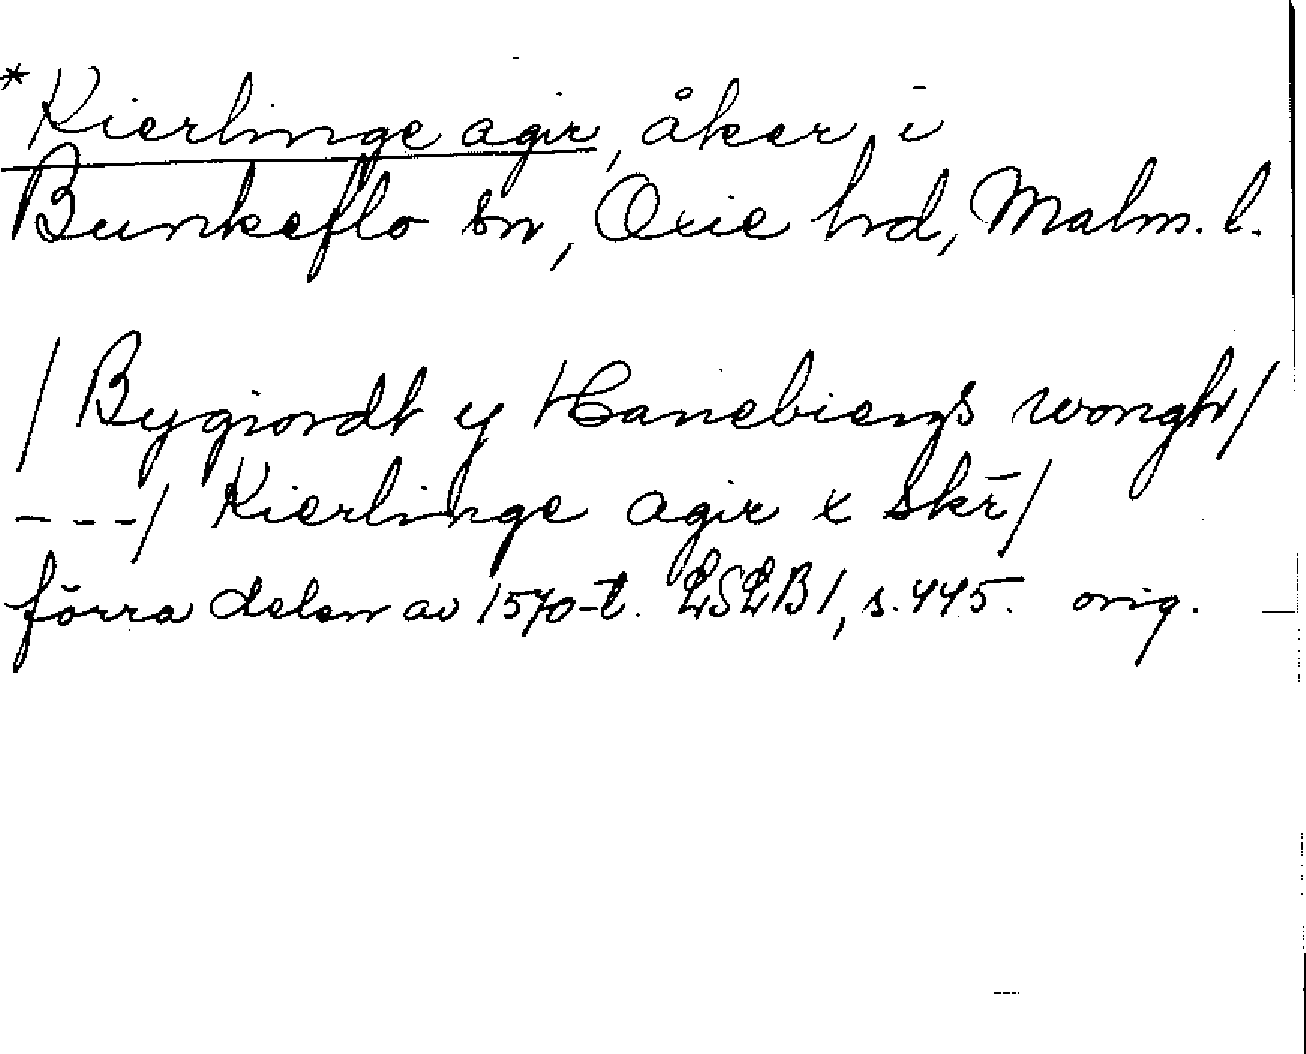 *Kierlinge agir, åker i
Bunkeflo sn, Oxie hd, Malm. l.
/ Bygiordt y Hanebiergs wongh /
---/ Kierlinge agir x skr̄ /
förra delen av 1570-t. LSLB 1, s. 445. orig.